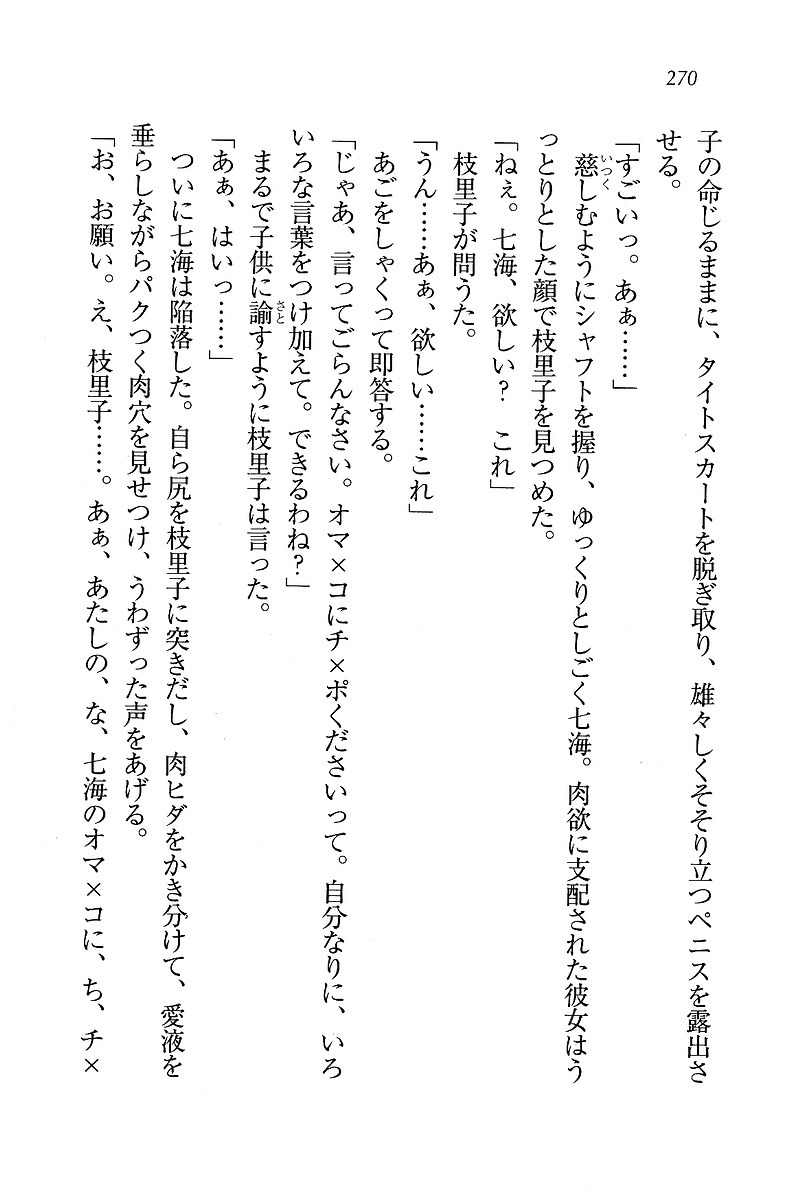 270
子の命じるままに、タイトスカートを脱ぎ取り、雄々しくそそり立つペニスを露出さ
せる。
「すごいっ。あぁ……」
慈しむようにシャフトを握り、ゆっくりとしごく七海。肉欲に支配された彼女はう
いつく
っとりとした顔で枝里子を見つめた。
「ねぇ。七海、欲しい？　これ」
枝里子が問うた。
「うん……あぁ、欲しい……これ」
あごをしゃくって即答する。
「じゃあ、言ってごらんなさい。オマ×コにチ×ポくださいって。自分なりに、いろ
いろな言葉をつけ加えて。できるわね？」
まるで子供に諭すように枝里子は言った。
さと
「あぁ、はいっ……」
ついに七海は陥落した。自ら尻を枝里子に突きだし、肉ヒダをかき分けて、愛液を
垂らしながらパクつく肉穴を見せつけ、うわずった声をあげる。
「お、お願い。え、枝里子……。あぁ、あたしの、な、七海のオマ×コに、ち、チ×